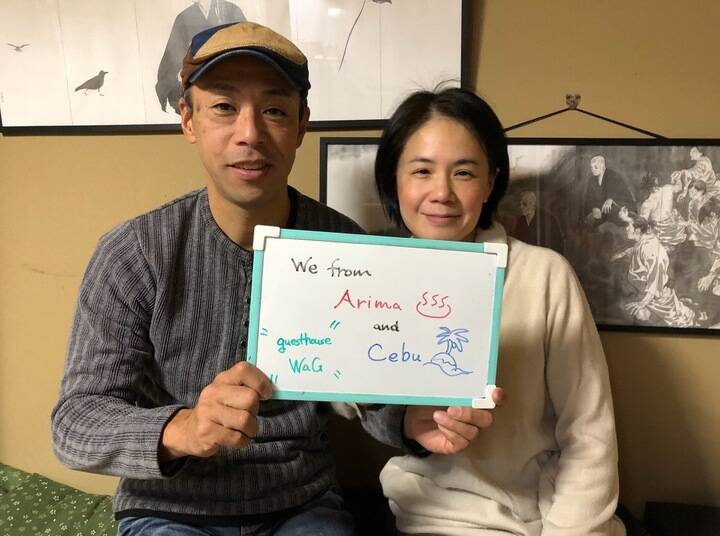 We from
Arima
and
Cebu
" guesthouse "
WaG